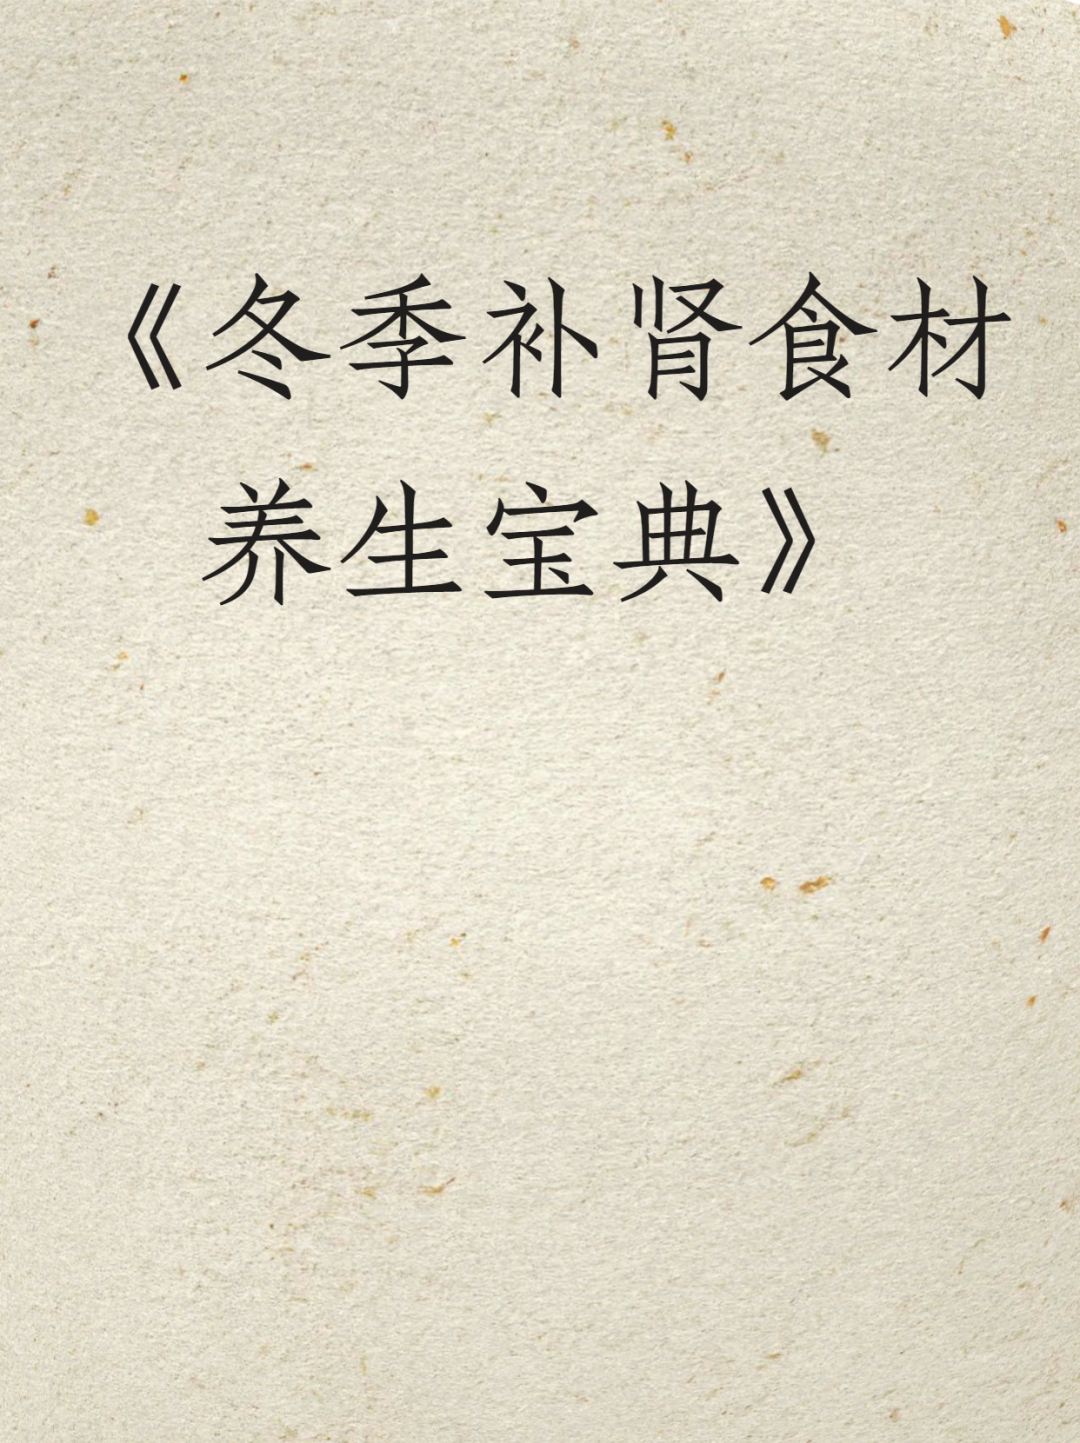 《冬季补肾食材
养生宝典》